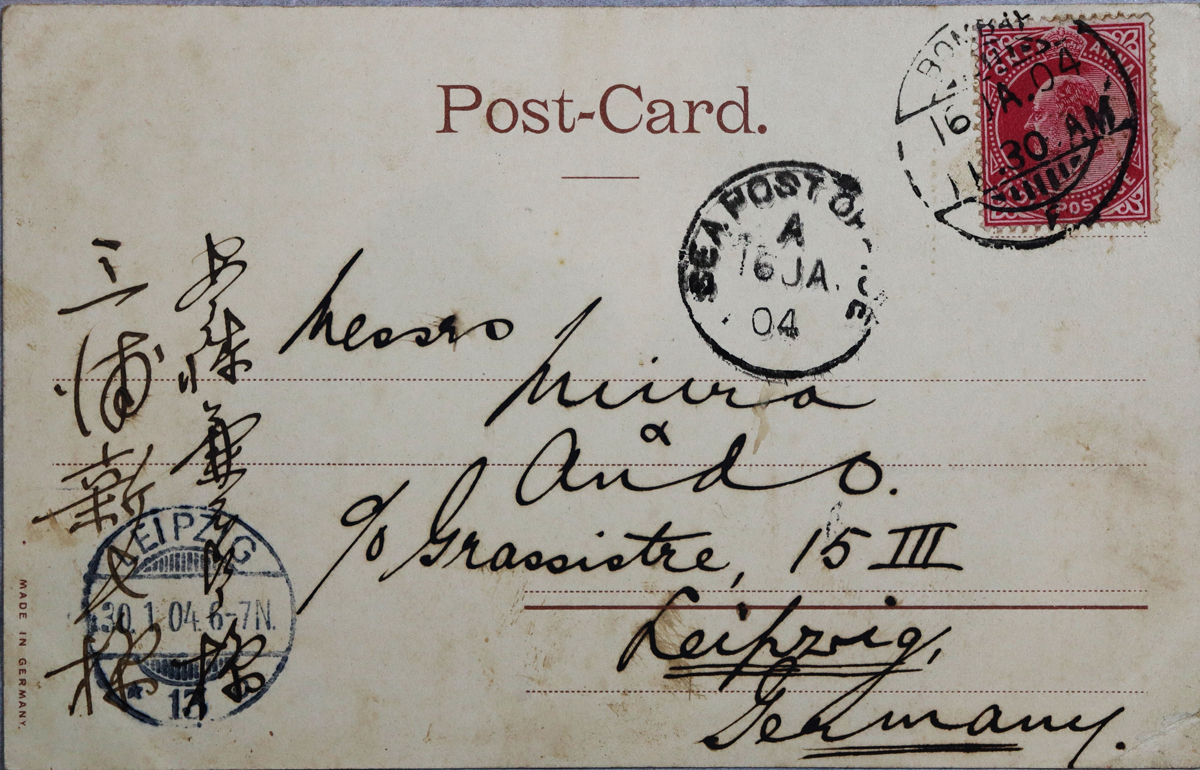 Post-Card.
ONE ANNA
POSTAGE
BOMBAY
16 JA.04
11.30 AM
SEA POST OFFICE
A
16 JA.
04
Messrs
Miura
&
Ando.
c/o Grassistre, 15 III
Leipzig,
Germany.
安藤兼
様
三浦新
様
LEIPZIG
30.1.04.6-7N.
13
MADE IN GERMANY.